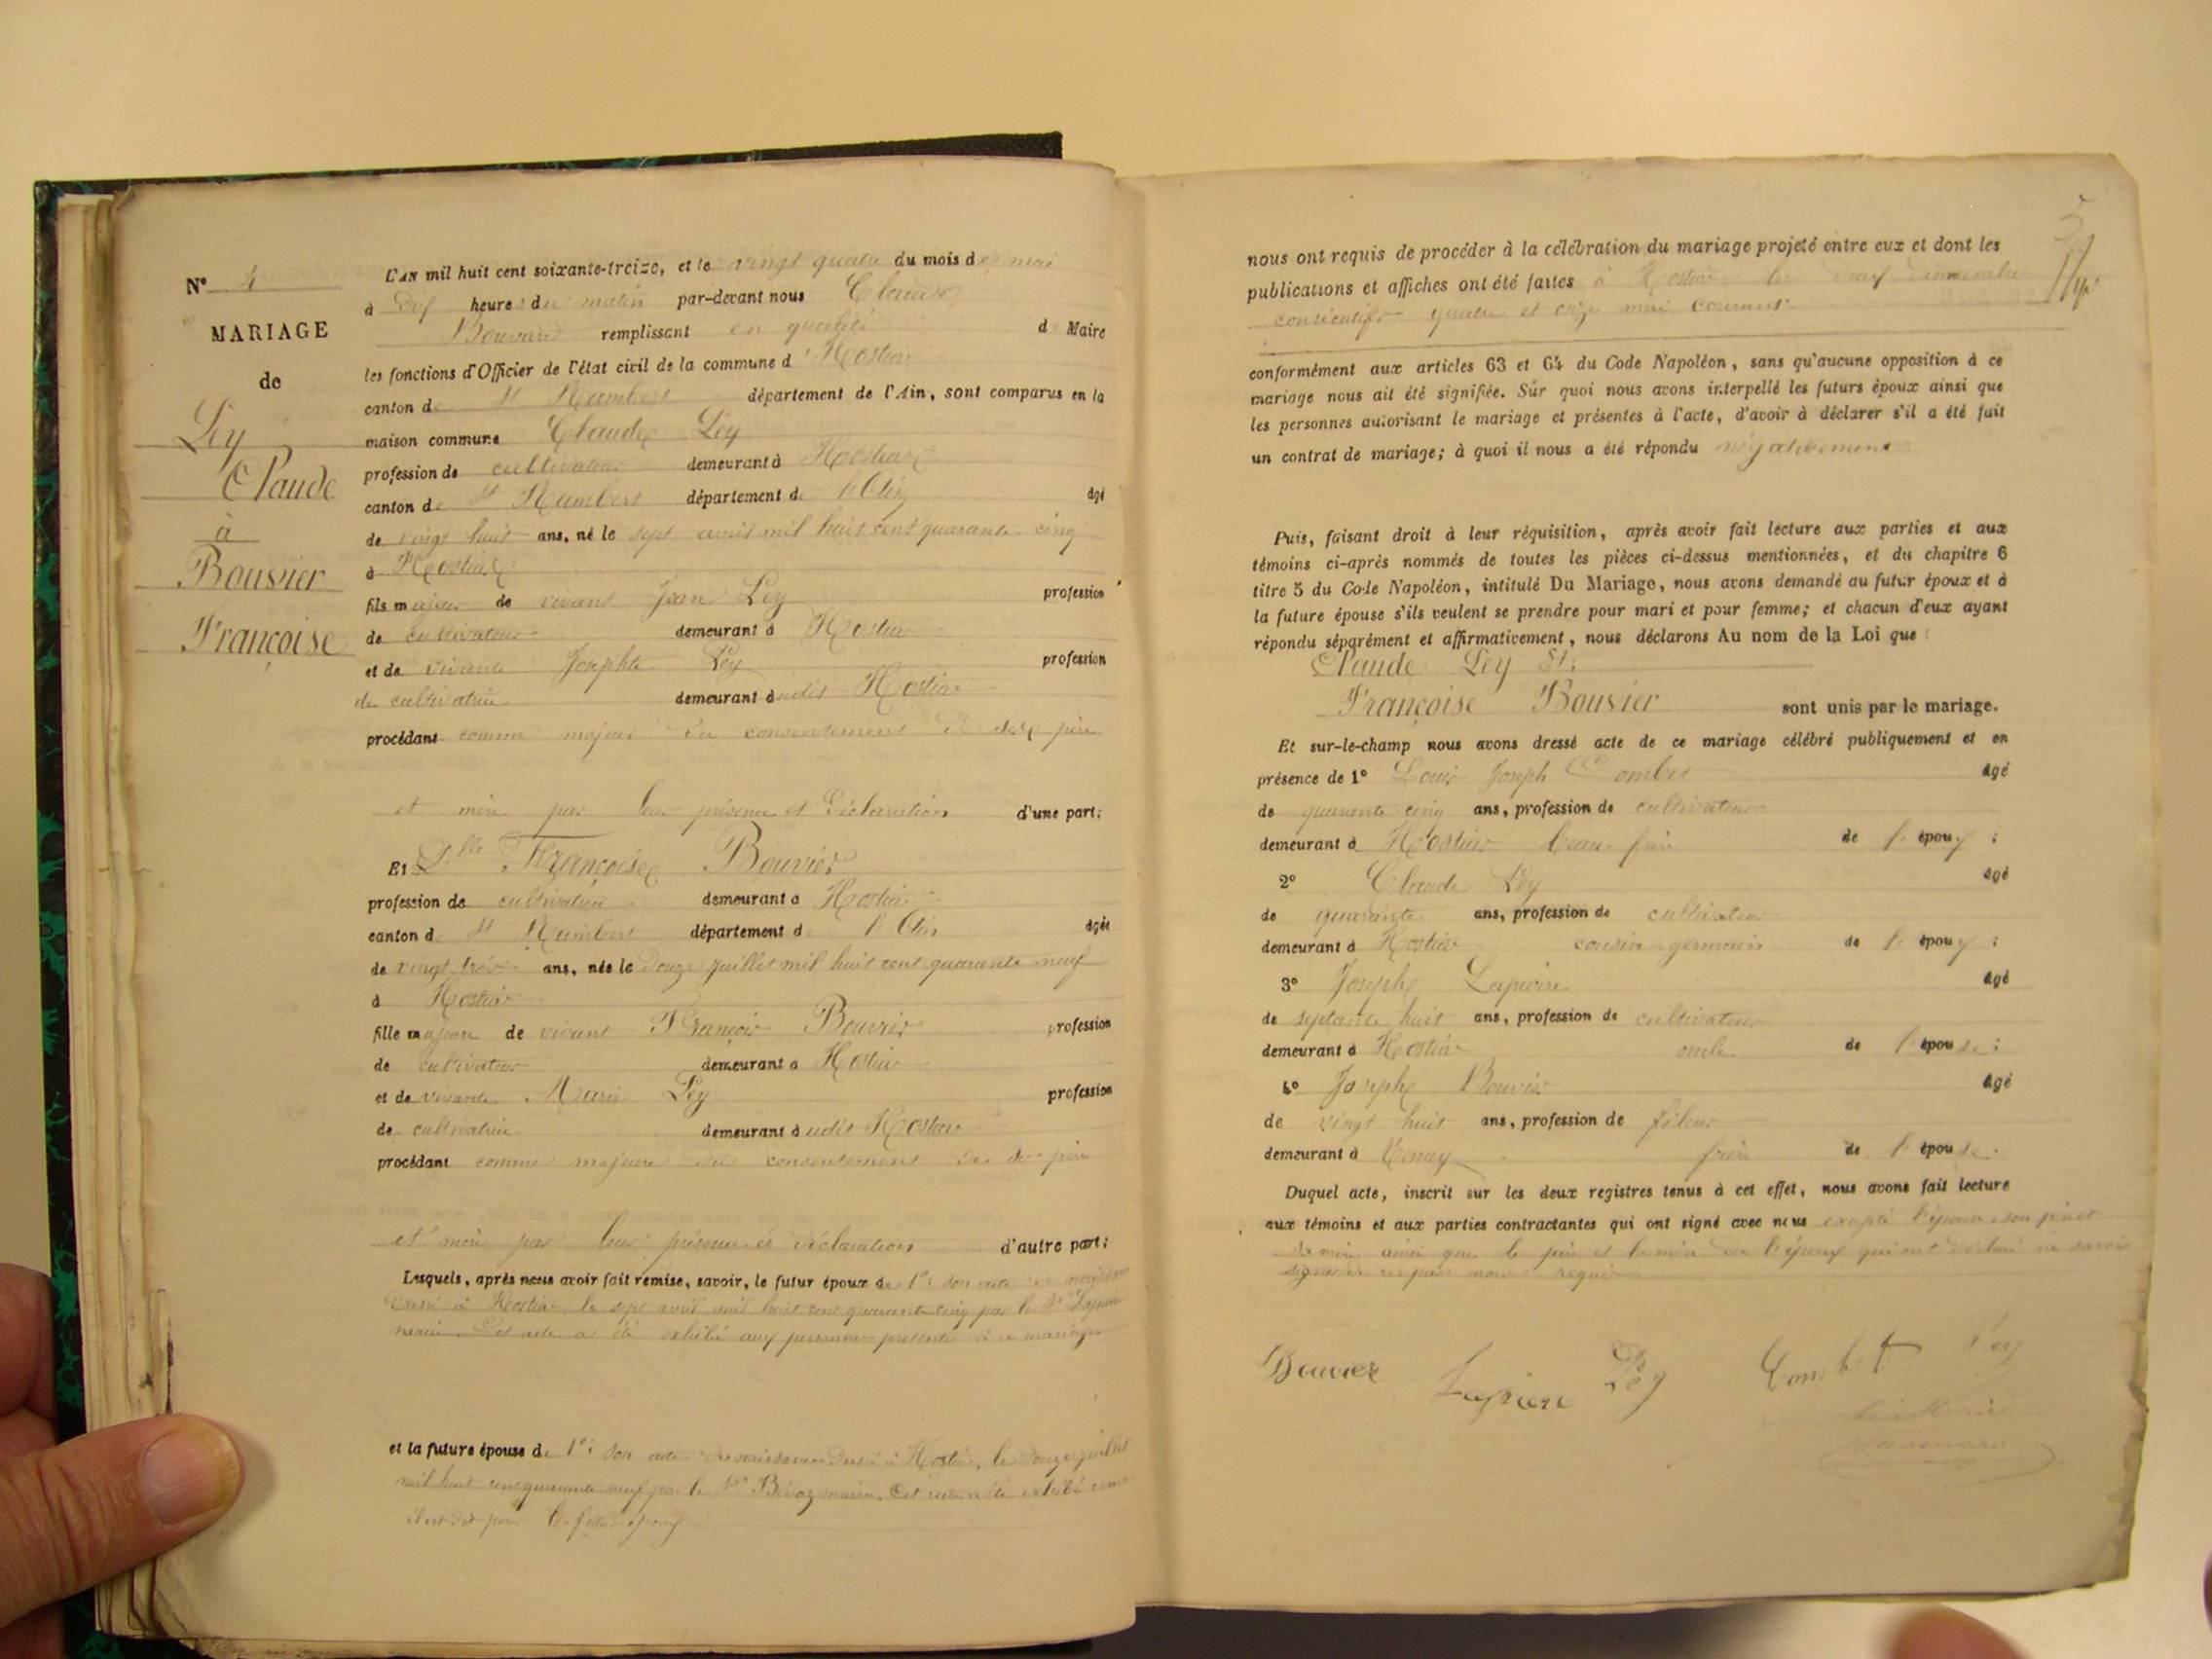 N° 4
MARIAGE
de
Ley
Claude
à
Bouvier
Françoise
L'AN mil huit cent soixante-treize, et le vingt quatre du mois de mai
à heures du matin par-devant nous Claude
Bouvard remplissant en qualité d Maire
les fonctions d'Officier de l'état civil de la commune d'Hostiaz
canton de St Rambert département de l'Ain, sont comparus en la
maison commune Claude Ley
profession de cultivateur demeurant à Hostiaz
canton de St Rambert département de l'Ain âgé
de vingt huit ans, né le sept avril mil huit cent quarante cinq
à Hostiaz
fils majeur de vivant Jean Ley profession
de cultivateur demeurant à Hostiaz
et de vivante Josephte Ley profession
de cultivatrice demeurant audit Hostiaz
procédant comme majeur du consentement de ses père
et mère par leur présence et déclaration d'une part;
Et Dlle Françoise Bouvier
profession de cultivatrice demeurant à Hostiaz
canton de St Rambert département de l'Ain âgée
de vingt trois ans, née le douze juillet mil huit cent quarante neuf
à Hostiaz
fille majeure de vivant François Bouvier profession
de cultivateur demeurant à Hostiaz
et de vivante Marie Ley profession
de cultivatrice demeurant audit Hostiaz
procédant comme majeure du consentement de ses père
et mère par leur présence et déclaration d'autre part;
Lesquels, après nous avoir fait remise, savoir, le futur époux de 1°: son acte de naissance
dressé à Hostiaz, le sept avril mil huit cent quarante cinq par le Sr Lapierre
maire. Cet acte a été exhibé aux personnes présentes à ce mariage
et la future épouse de 1°: son acte de naissance dressé à Hostiaz, le douze juillet
mil huit cent quarante neuf par le Sr Bévoz maire. Cet acte a été exhibé comme
il est dit pour le futur époux
nous ont requis de procéder à la célébration du mariage projeté entre eux et dont les
publications et affiches ont été faites à Hostiaz les deux dimanches
consécutifs quatre et onze mai courant.
conformément aux articles 63 et 64 du Code Napoléon, sans qu'aucune opposition à ce
mariage nous ait été signifiée. Sur quoi nous avons interpellé les futurs époux ainsi que
les personnes autorisant le mariage et présentes à l'acte, d'avoir à déclarer s'il a été fait
un contrat de mariage; à quoi il nous a été répondu négativement
Puis, faisant droit à leur réquisition, après avoir fait lecture aux parties et aux
témoins ci-après nommés de toutes les pièces ci-dessus mentionnées, et du chapitre 6
titre 5 du Code Napoléon, intitulé Du Mariage, nous avons demandé au futur époux et à
la future épouse s'ils veulent se prendre pour mari et pour femme; et chacun d'eux ayant
répondu séparément et affirmativement, nous déclarons Au nom de la Loi que :
Claude Ley Et
Françoise Bouvier sont unis par le mariage.
Et sur-le-champ nous avons dressé acte de ce mariage célébré publiquement et en
présence de 1° Louis Joseph Combet âgé
de quarante cinq ans, profession de cultivateur
demeurant à Hostiaz beau-frère de l'époux ;
2° Claude Ley âgé
de quarante ans, profession de cultivateur
demeurant à Hostiaz cousin germain de l'époux ;
3° Joseph Lapierre âgé
de septante huit ans, profession de cultivateur
demeurant à Hostiaz oncle de l'épouse ;
4° Joseph Bouvier âgé
de vingt huit ans, profession de fileur
demeurant à Tenay frère de l'épouse.
Duquel acte, inscrit sur les deux registres tenus à cet effet, nous avons fait lecture
aux témoins et aux parties contractantes qui ont signé avec nous excepté l'épouse son père et
sa mère ainsi que le père et la mère de l'époux qui ont déclaré ne savoir
signer de ce par nous requis
Bouvier Lapierre Ley Combet Ley